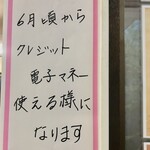 6月頃から
クレジット
電子マネー
使える様に
なります